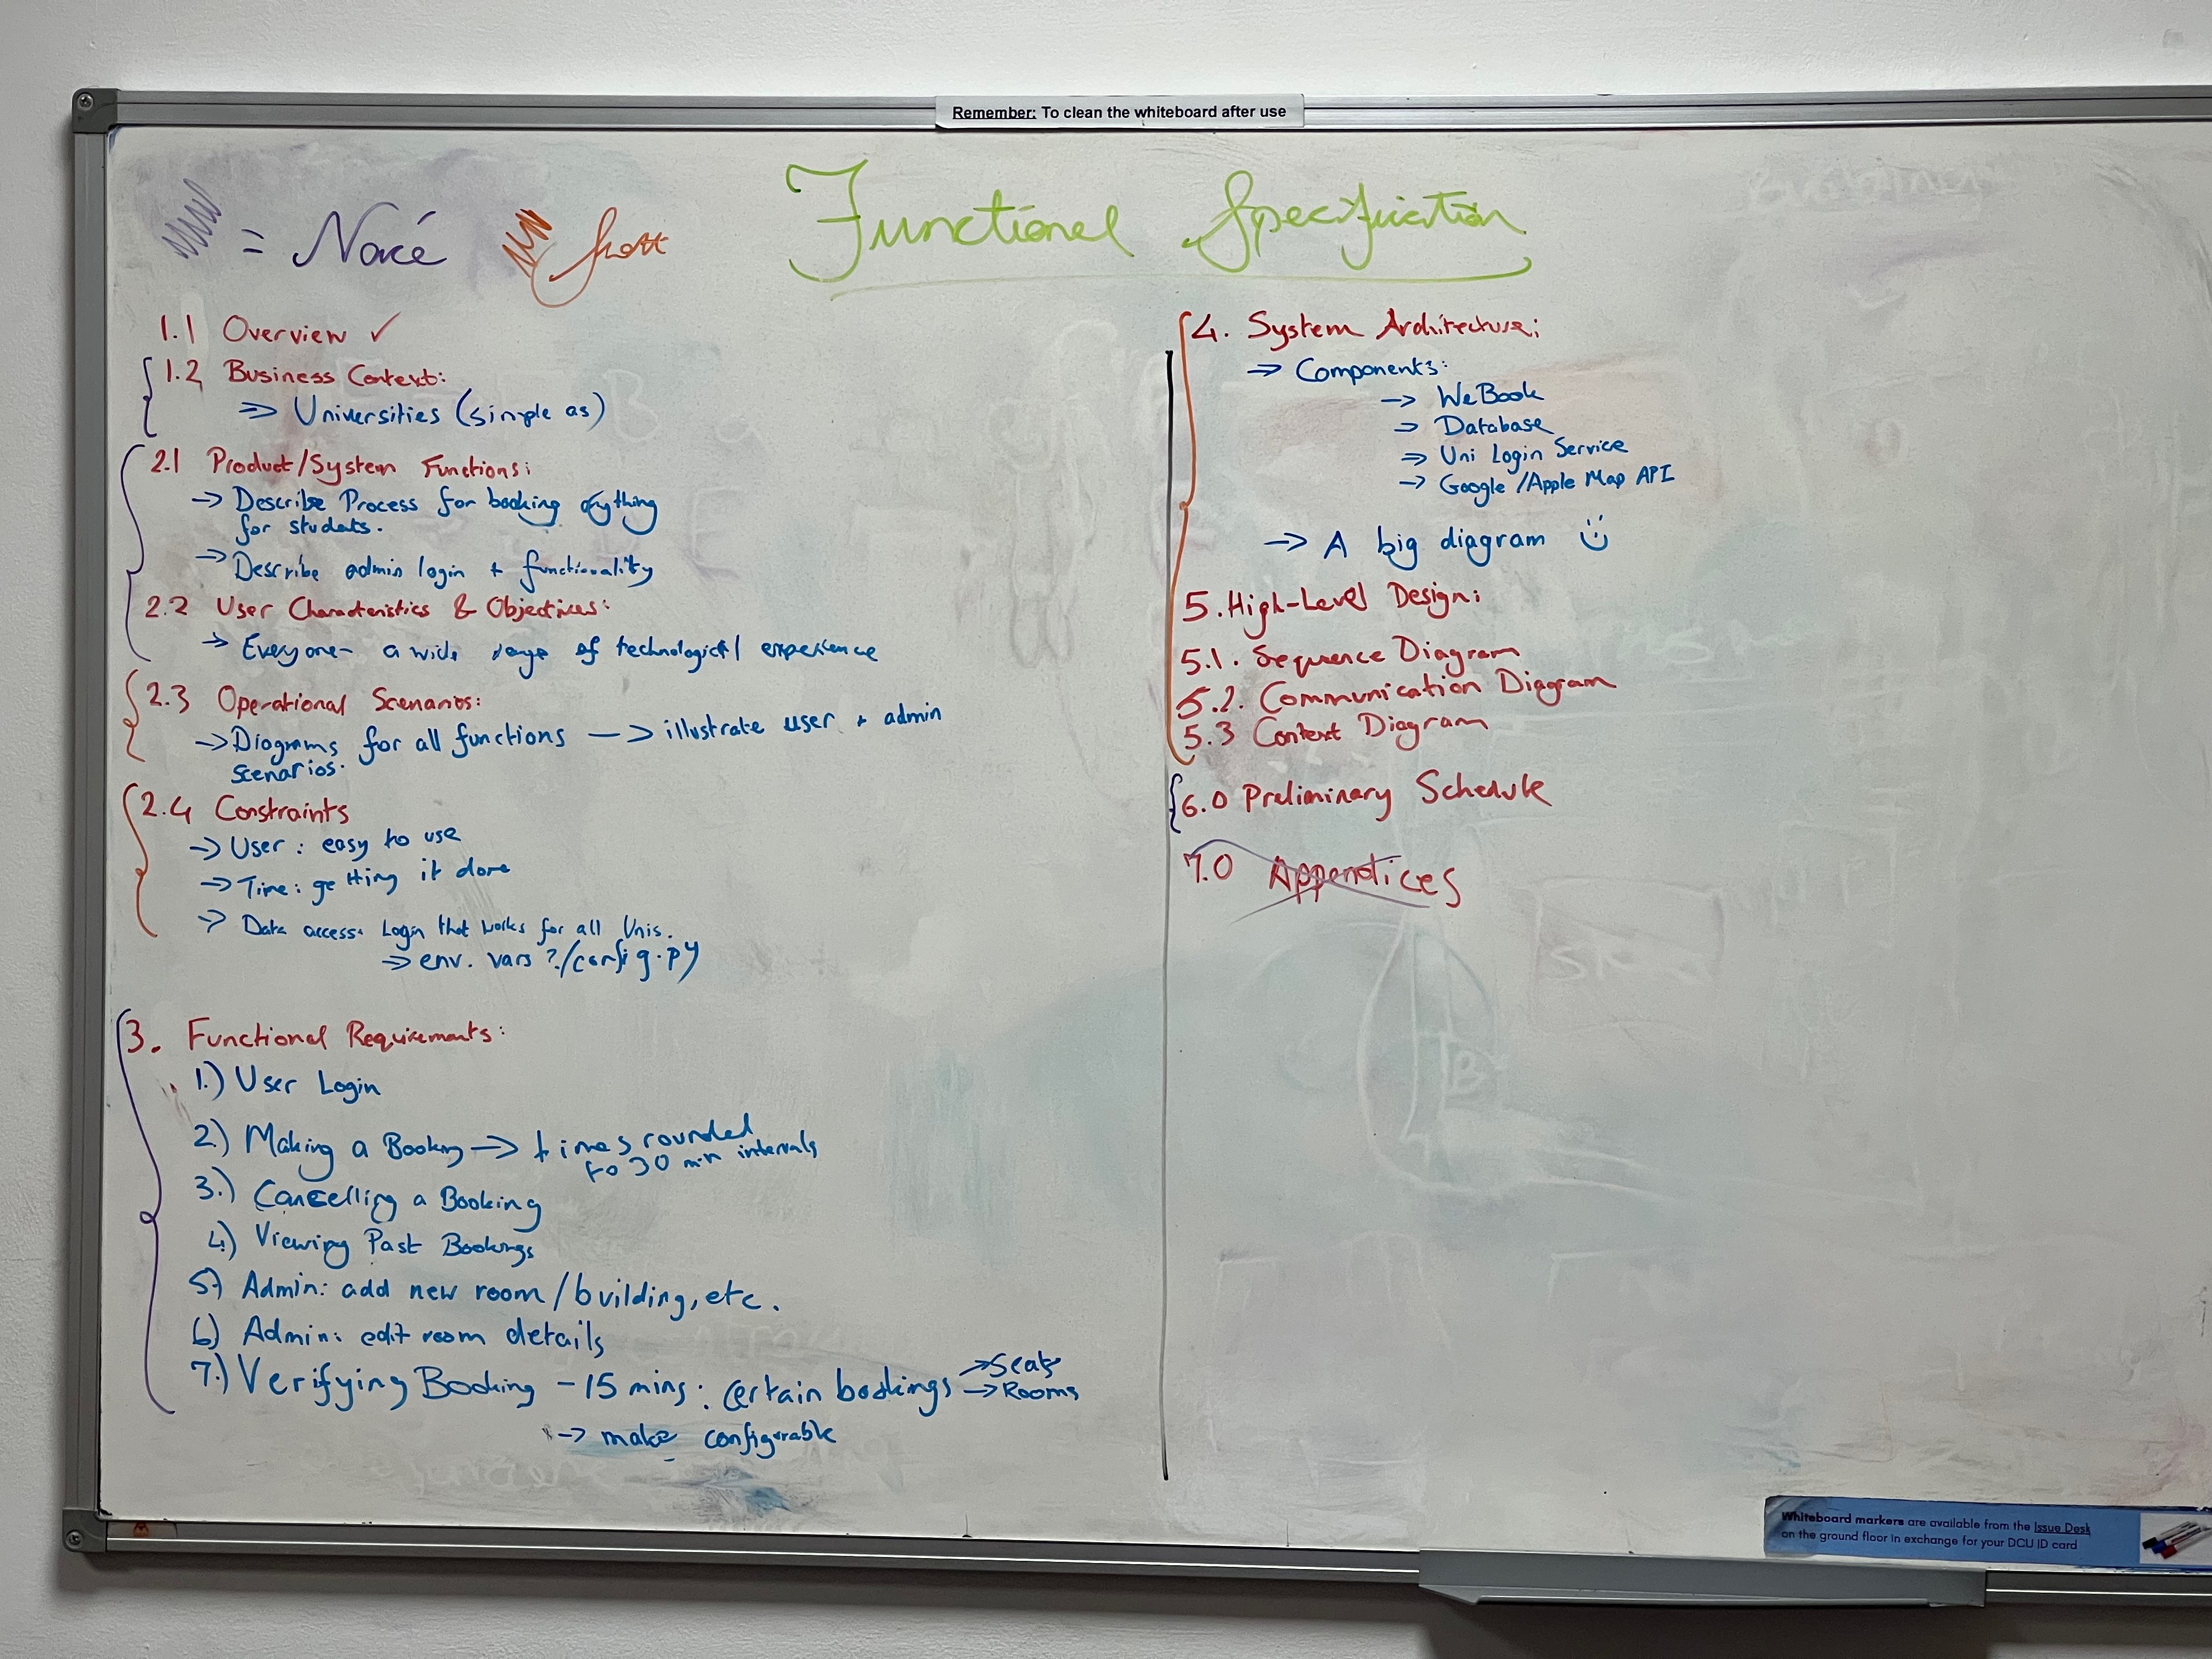 Remember: To clean the whiteboard after use
Functional Specification
=
1.1 Overview ✓
1.2 Business Context:
⇒ Universities (simple as)
2.1 Product/System Functions:
→ Describe Process for booking anything
for students.
→ Describe admin login + functionality
2.2 User Characteristics & Objectives:
→ Everyone - a wide range of technological experience
2.3 Operational Scenarios:
→ Diagrams for all functions → illustrate user + admin
scenarios.
2.4 Constraints
→ User: easy to use
→ Time: getting it done
→ Data access: Login that works for all Unis.
⇒ env. vars?/config.py
3. Functional Requirements:
1.) User Login
2.) Making a Booking → times rounded
to 30 min intervals
3.) Cancelling a Booking
4.) Viewing Past Bookings
5) Admin: add new room/building, etc.
6) Admin: edit room details
7.) Verifying Booking - 15 mins: certain bookings → Seats
→ Rooms
→ make configurable
4. System Architecture:
→ Components:
→ WeBook
→ Database
→ Uni Login Service
→ Google/Apple Map API
→ A big diagram
5. High-Level Design:
5.1. Sequence Diagram
5.2. Communication Diagram
5.3 Context Diagram
6.0 Preliminary Schedule
7.0 Appendices
Whiteboard markers are available from the Issue Desk
on the ground floor in exchange for your DCU ID card